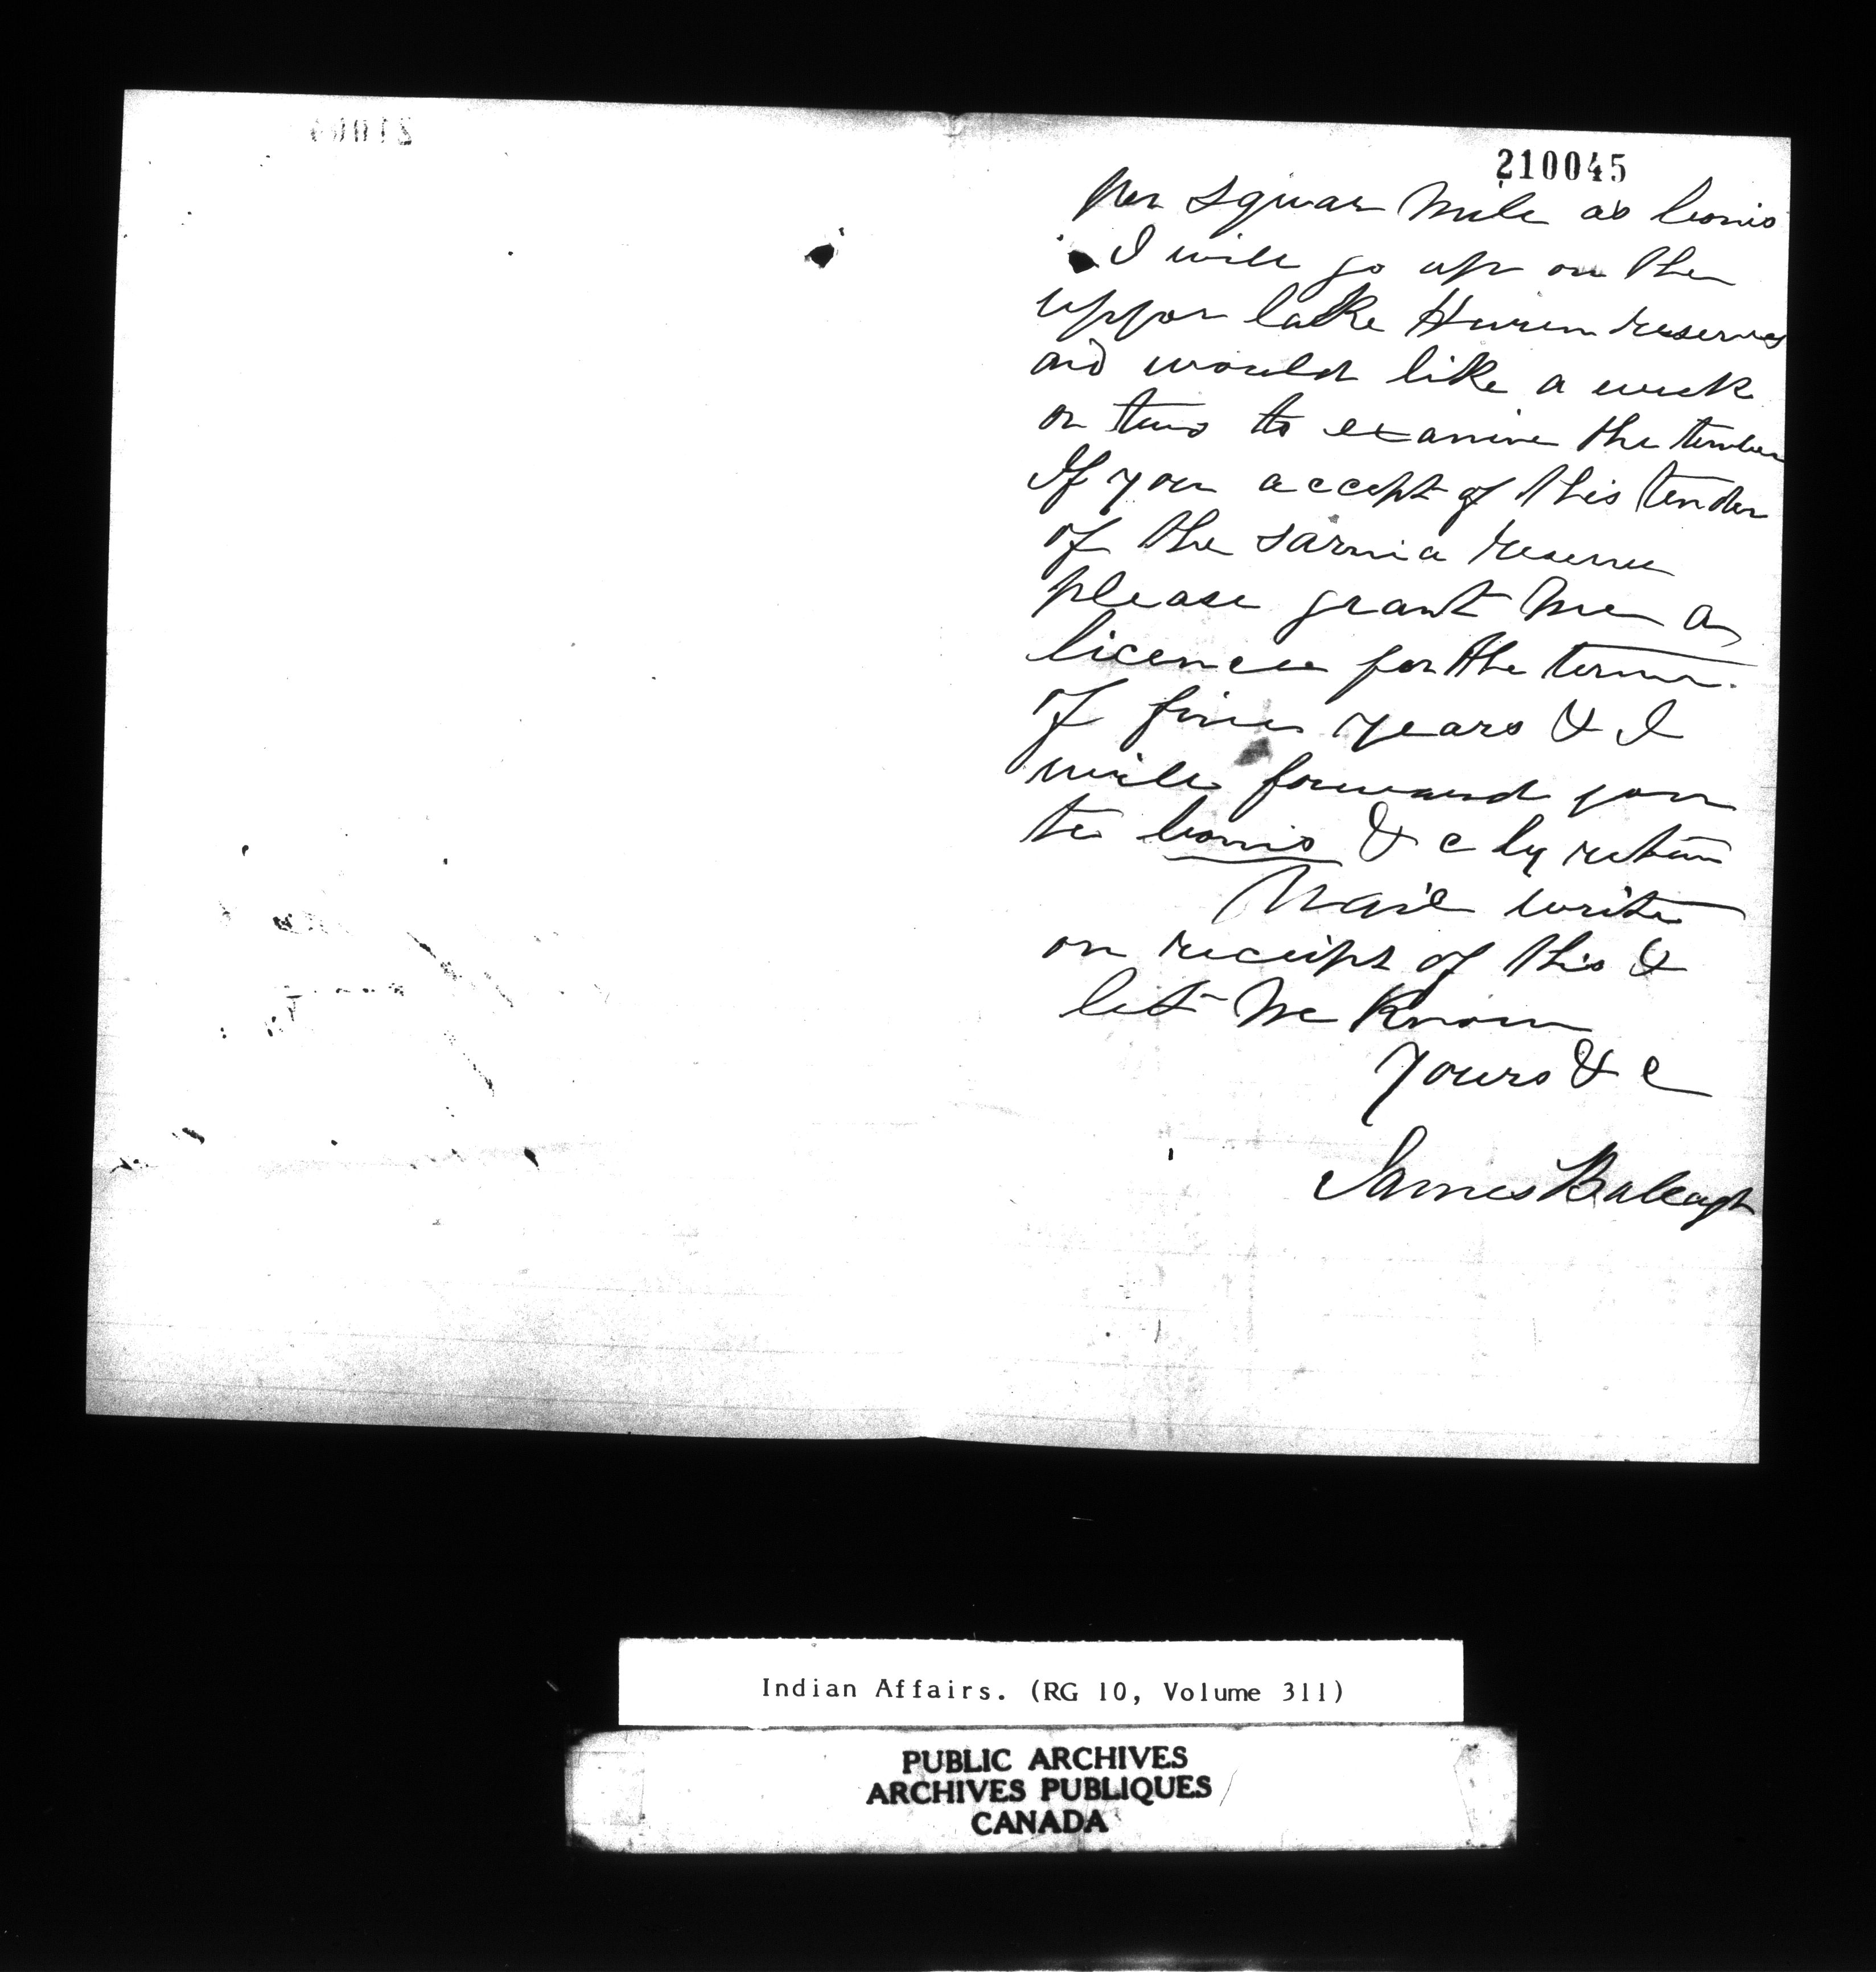 210045
per squar Mile as bonis
I will go up on the
uppor lake Huron reserves
and would like a week
or two to examine the timber
If you accept of this tender
of the sarnia reserve
please grant me a
licence for the term
of five years & I
will forward you
te bonis & c by return
Mail write
on receipt of this &
let me Know
Yours & c
James Baleagh
Indian Affairs. (RG 10, Volume 311)
PUBLIC ARCHIVES
ARCHIVES PUBLIQUES
CANADA